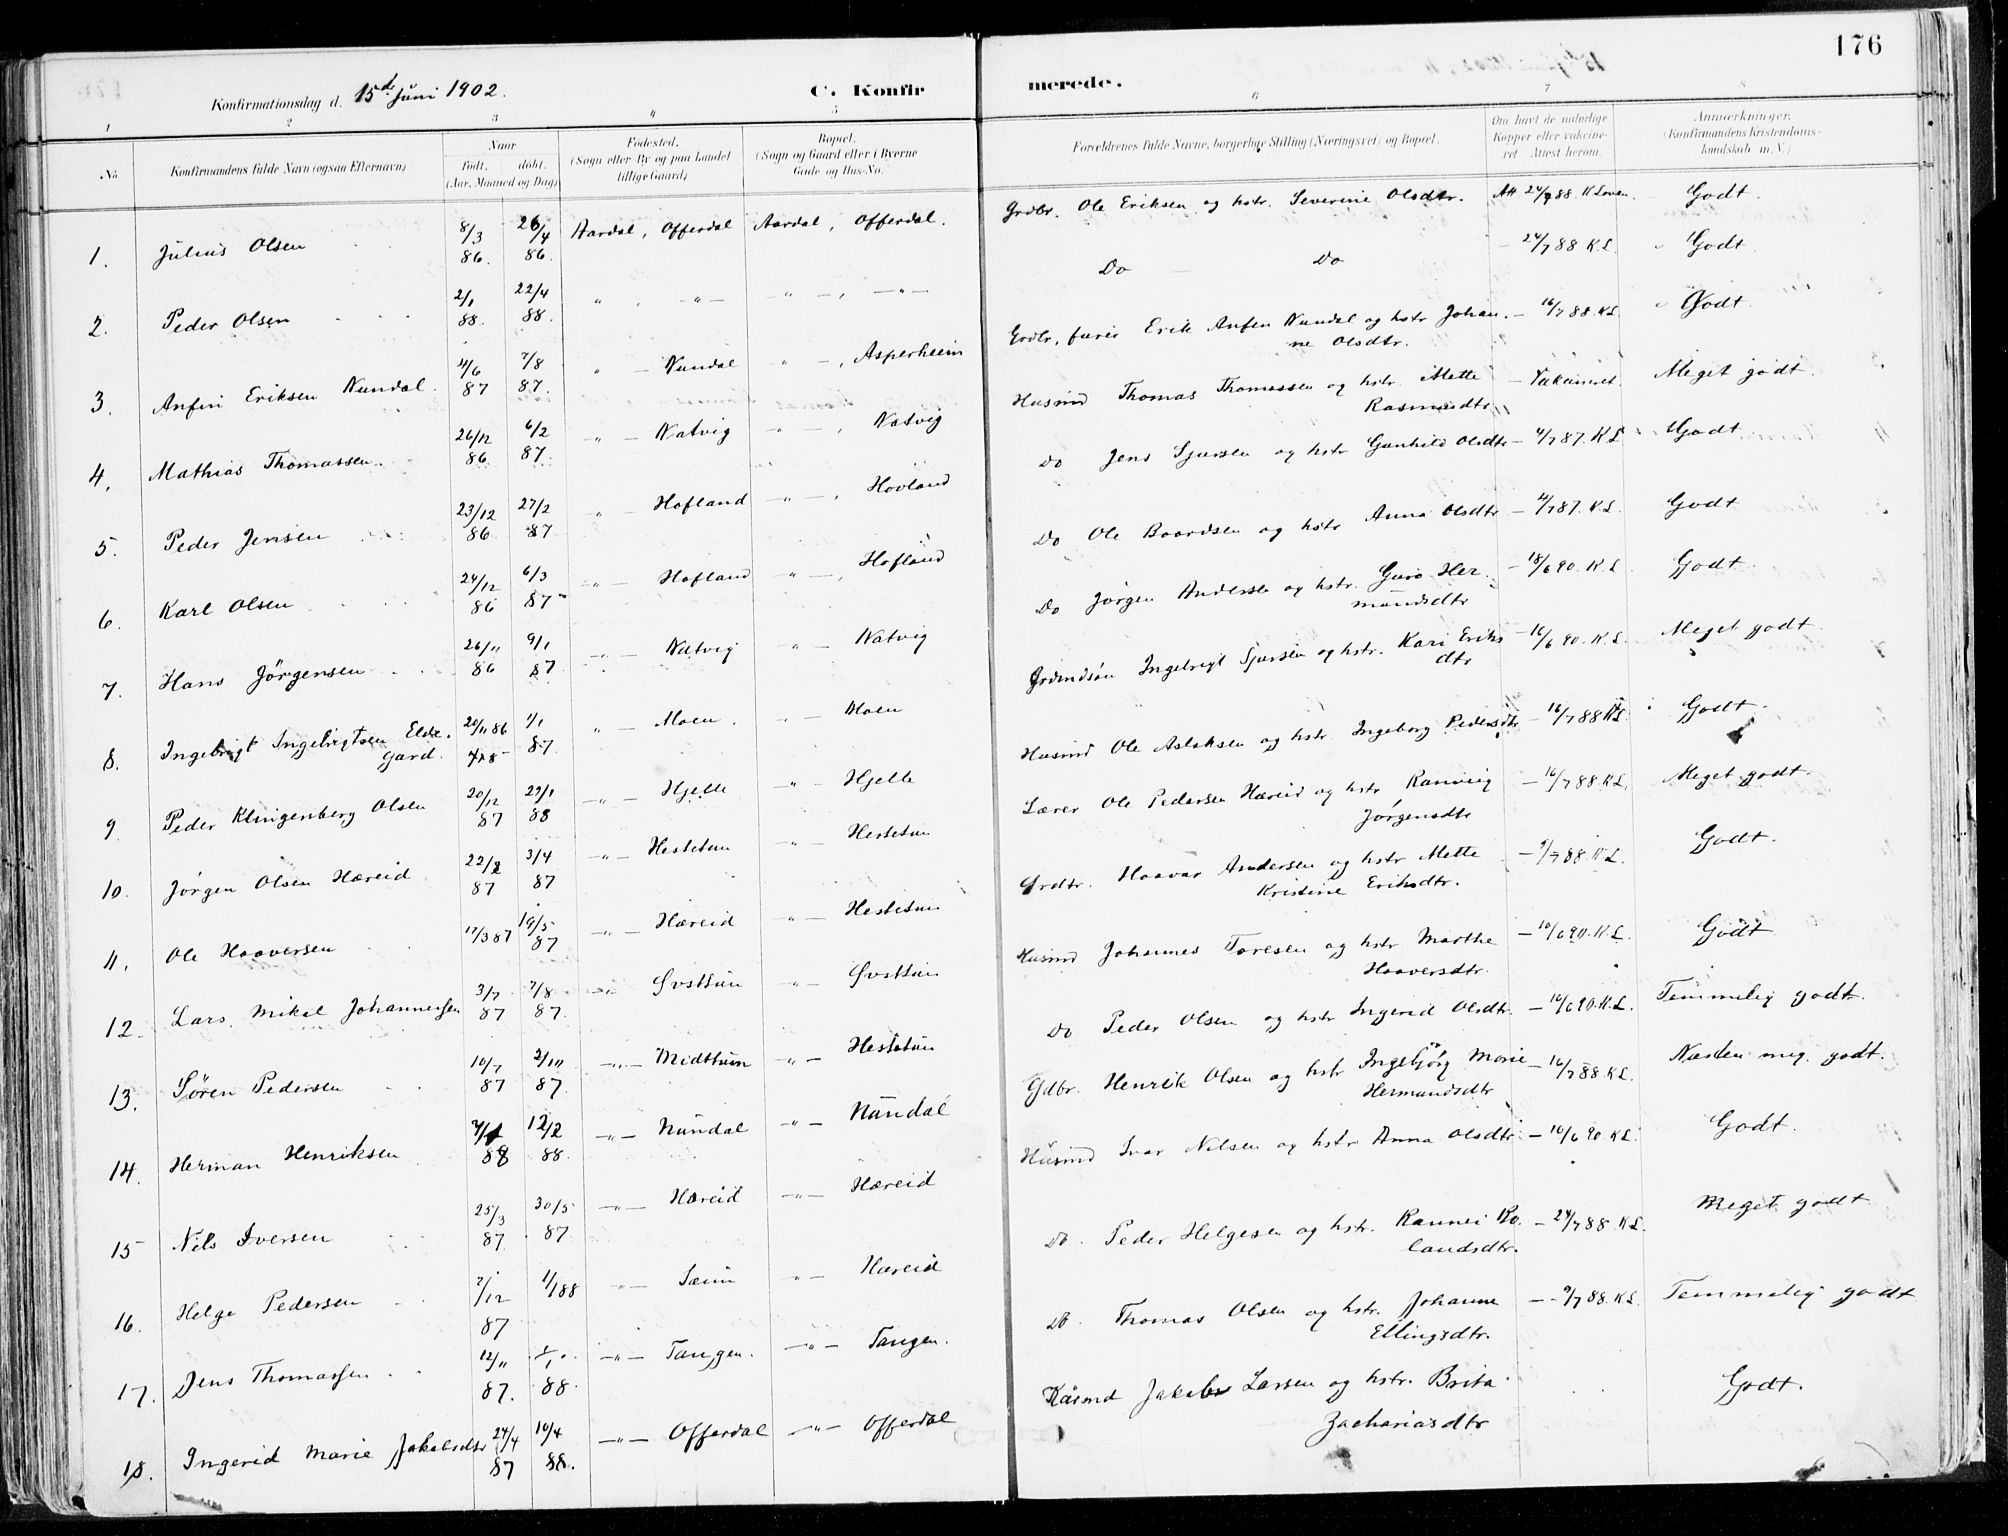 176
Konfirmationsdag d. 15de Juni 1902.
C. Konfirmerede.
1 2 3 4 5 6 7 8
No
Konfirmandens fulde Navn (ogsaa Efternavn)
Naar
født. døbt.
(Aar, Maaned og Dag)
Fødested.
(Sogn eller By og paa Landet
tillige Gaard)
Bopæl.
(Sogn og Gaard eller i Byerne
Gade og Hus-No.
Forældrenes fulde Navne, borgerlige Stilling (Næringsvei) og Bopæl.
Om havt de naturlige
Kopper eller vaksine-
ret. Attest herom.
Anmærkninger.
(Konfirmandens kristendoms-
kundskab m. V.)
1. Julius Olsen 8/3 86. 26/4 86. Aardal, Offerdal Aardal, Offerdal. Grdbr. Ole Eriksen og hstr. Severine Olsdtr. Att 24/7 88. K Loven. Godt.
2. Peder Olsen 2/1 88. 22/4 88. " , -"- " -, -"- Do Do - 24/7 88 K.L. Godt.
3. Anfin Eriksen Nundal. 4/6 87 7/8 87. " - Nundal " -, Asperheim Grdbr, furer Erik Anfin Nundal og hstr Johan-
ne Olsdtr. - 16/7 88. K.L. Godt.
4. Mathias Thomassen. 26/12 86 6/2 87. -"- Natvig -"-, Natvig Husmd Thomas Thomassen og hstr. Mette
Rasmusdtr. - Vakcineret. Meget godt.
5. Peder Jensen 23/12 86 27/2 87 " - Hofland -"-, Hovland Do Jens Sjursen og hstr Gunhild Olsdtr - 4/7 87. K.L Godt.
6. Karl Olsen 24/12 86 6/3 87 -"- Hofland -"-, Hofland Do Ole Baardsen og hstr Anna Olsdtr - 4/7 87. K.L. Godt
7. Hans Jørgensen 26/11 86 9/1 87 -"- Natvig -"- Natvig Do Jørgen Andersen og hstr. Guro Her-
mundsdtr - 18/6 90. K.L Godt.
8. Ingebrigt Ingebrigtsen Elde-
gard. 20/11 86 1/1 87. " - Moen. -"- Moen Ingebrigt Sjursen og hstr. Kari Eriks
dtr - 16/6 90. K.L. Meget godt.
9. Peder Klingenberg Olsen 20/12 87 22/1 88 -"- Hjelle " - Hjelle Husmd Ole Aslaksen og hstr. Ingeborg Pedersdtr - 16/7 88 K.L. Godt.
10. Jørgen Olsen Hæreid. 22/2 87 3/4 87 -"- Hestetun " - Hestetun Lærer Ole Pedersen Hæreid og hstr Ranveig
Jørgensdtr - 16/7 88. K.L. Meget godt.
11. Ole Haaversen 17/3 87 19/5 87 -"- Hæreid " - Hestetun Haavar Andersen og hstr Mette
Kristine Eriksdtr. - 9/7 88. K.L. Godt.
12. Lars Mikal Johannessen 3/7 87 7/8 87. -"- Øvsttun " - Øvsttun Husmd Johannes Toresen og hstr Marthe
Haaversdtr. - 16/6 90. K.L. Godt
13. Søren Pedersen 10/7 87 2/10 87. -"- Midttun " - Hestetun Do Peder Olsen og hstr Ingerid Olsdtr. - 16/6 90. K.L. Temmelig godt.
14. Herman Henriksen 88 12/2 88. -"- Nundal " - Nundal Gdbr. Henrik Olsen og hstr Ingebjørg Marie
Hermundsdtr - 16/7 88. K.L. Næsten meg. godt.
15 Nils Iversen 25/3 87 30/5 87. -"- Hæreid -"- Hæreid Husmd Ivar Nilsen og hstr Anna Olsdtr. - 16/6 90. K.L. Godt.
16. Helge Pedersen 2/12 87 1/1 88 -"- Sæim " - Hæreid Do. Peder Helgesen og hstr. Rannei Ro-
landsdtr. - 24/7 88. K.L. Meget godt
17. Jens Thomassen 12/11 87. 88. -"- Tangen. -"- Tangen. Do. Thomas Olsen og hstr. Johanne
Ellingsdtr. - 9/7 88. K.L. Temmelig godt
18. Ingerid Marie Jakobsdtr 24/4 87 10/4 88. -"- Offerdal -"- Offerdal Husmd Jakob Larsen og hstr. Brita
Zachariasdtr Godt.